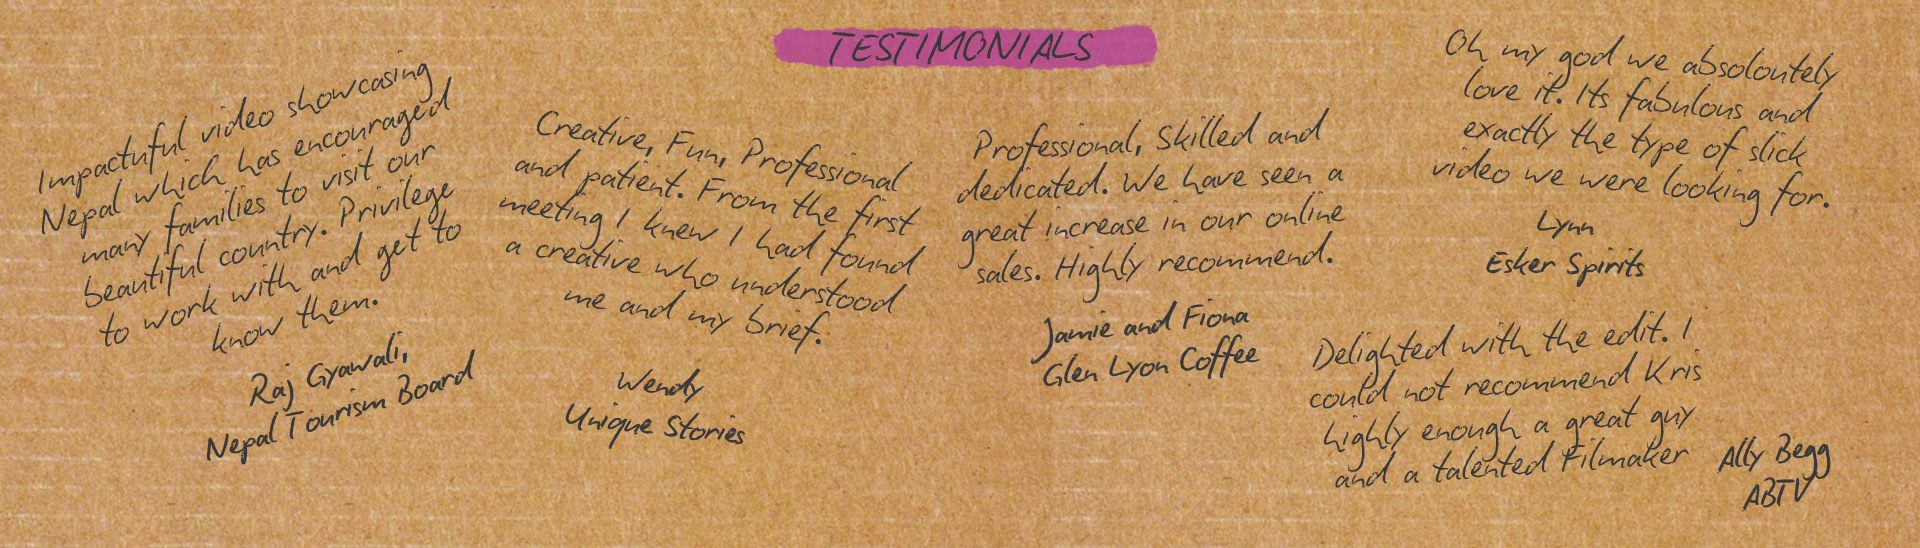 TESTIMONIALS
Impactuful video showcasing
Nepal which has encouraged
many families to visit our
beautiful country. Privilege
to work with and get to
know them.
Raj Gyawali,
Nepal Tourism Board
Creative, Fun, Professional
and patient. From the first
meeting I knew I had found
a creative who understood
me and my brief.
Wendy
Unique Stories
Professional, Skilled and
dedicated. We have seen a
great increase in our online
sales. Highly recommend.
Jamie and Fiona
Glen Lyon Coffee
Oh my god we absoloutely
love it. Its fabulous and
exactly the type of slick
video we were looking for.
Lynn
Esker Spirits
Delighted with the edit. I
could not recommend Kris
highly enough a great guy
and a talented Filmaker
Ally Begg
ABTV